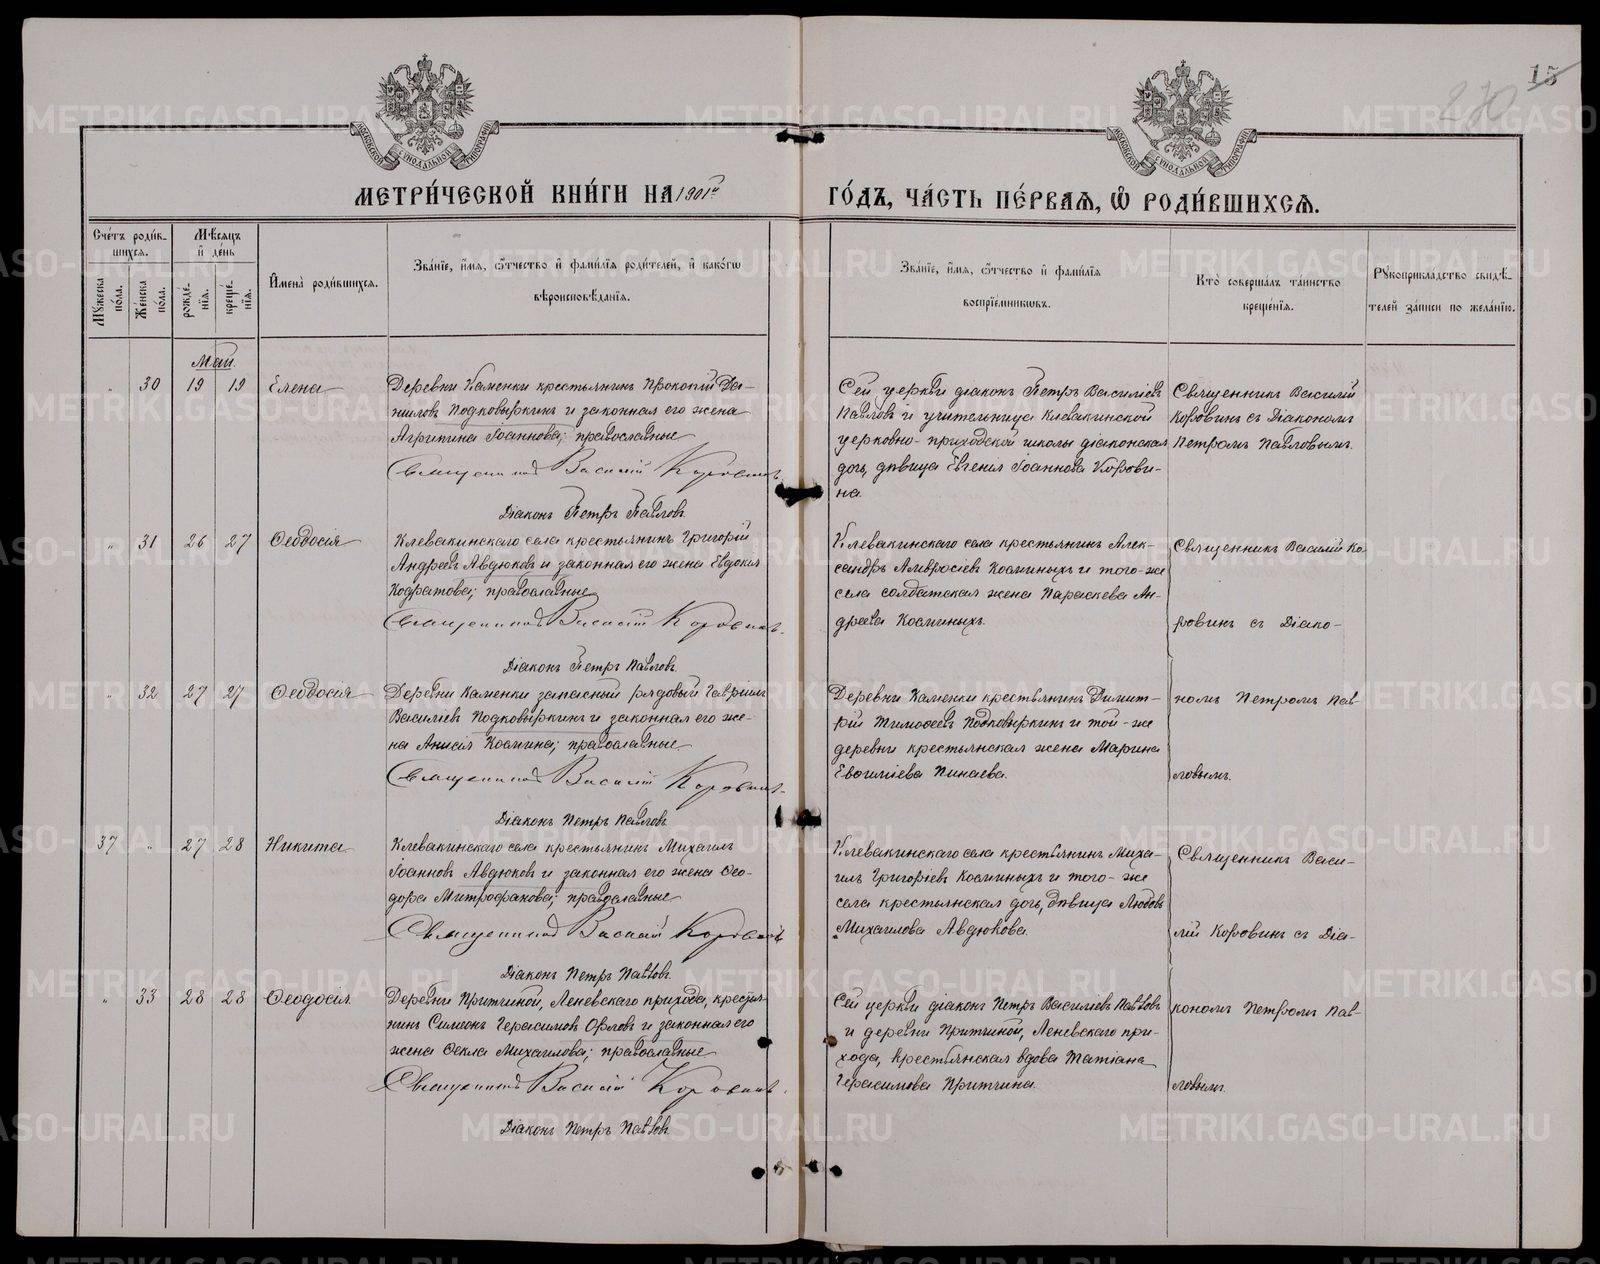 15
270
МОСКОВСКОЙ СѴНОДАЛЬНОЙ ТИПОГРАФІИ
МОСКОВСКОЙ СѴНОДАЛЬНОЙ ТИПОГРАФІИ
МЕТРИ́ЧЕСКОЙ КНИ́ГИ НА 1901й ГО́ДЪ, ЧА́СТЬ ПЕ́РВАЯ, Ѽ РОДИ́ВШИХСЯ.
Сче́тъ роди́в-
шихся.
Мѣ́сяцъ
и҆ де́нь
Мꙋ́жеска по́ла.
Же́нска по́ла.
рожде́-
нїѧ.
креще́-
нїѧ.
И҆мена̀ роди́вшихся.
Зва́нїе, и҆́мѧ, ѻ҆́тчество и҆ фами́лїѧ роди́телей, и҆ како́гѡ
вѣроисповѣ́данїѧ.
Зва́нїе, и҆́мѧ, ѻ҆́тчество и҆ фами́лїѧ
воспрїе́мниковъ.
Кто̀ соверша́лъ та́инство
креще́нїѧ.
Рꙋкоприкла́дство свидѣ́-
телей за́писи по жела́нїю.
Май.
" 30 19 19 Елена
Деревни Каменки крестьянинъ Прокопій Да-
ниловъ Подковыркинъ и законная его жена
Агрипина Іоаннова; православные
Священникъ Василій Коровинъ.
Діаконъ Петръ Павловъ
Сей церкви діаконъ Петръ Василіевъ
Павловъ и учительница Клевакинской
церковно-приходской школы діаконская
дочь, дѣвица Евгенія Іоаннова Корови-
на.
Священникъ Василій
Коровинъ съ Діакономъ
Петромъ Павловымъ.
" 31 26 27 Ѳеодосія
Клевакинскаго села крестьянинъ Григорій
Андреевъ Авдюковъ и законная его жена Евдокія
Кодратова; православные
Священникъ Василій Коровинъ.
Діаконъ Петръ Павловъ
Клевакинскаго села крестьянинъ Алек-
сандръ Амвросіевъ Косминыхъ и того-же
села солдатская жена Параскева Ан-
дреева Косминыхъ.
Священникъ Василій Ко-
ровинъ съ Діако-
" 32 27 27 Ѳеодосія
Деревни Каменки запасный рядовый Гавріилъ
Василіевъ Подковыркинъ и законная его же-
на Анисія Космина; православные
Священникъ Василій Коровинъ.
Діаконъ Петръ Павловъ
Деревни Каменки крестьянинъ Димит-
рій Тимоѳеевъ Подковыркинъ и той-же
деревни крестьянская жена Марина
Евѳиміева Пинаева.
номъ Петромъ Пав-
ловымъ.
37 " 27 28 Никита
Клевакинскаго села крестьянинъ Михаилъ
Іоанновъ Авдюковъ и законная его жена Ѳео-
дора Митрофанова; православные
Священникъ Василій Коровинъ
Діаконъ Петръ Павловъ
Клевакинскаго села крестьянинъ Миха-
илъ Григоріевъ Косминыхъ и того-же
села крестьянская дочь, дѣвица Любовь
Михаилова Авдюкова.
Священникъ Васи-
лій Коровинъ съ Діа-
" 33 28 28 Ѳеодосія
Деревни Притчиной, Леневскаго прихода, крестья-
нинъ Симеонъ Герасимовъ Орловъ и законная его
жена Ѳекла Михаилова; православные
Священникъ Василій Коровинъ.
Діаконъ Петръ Павловъ
Сей церкви діаконъ Петръ Василіевъ Павловъ
и деревни Притчиной, Леневскаго при-
хода, крестьянская вдова Татіана
Герасимова Притчина.
кономъ Петромъ Пав-
ловымъ.
METRIKI.GASO-URAL.RU